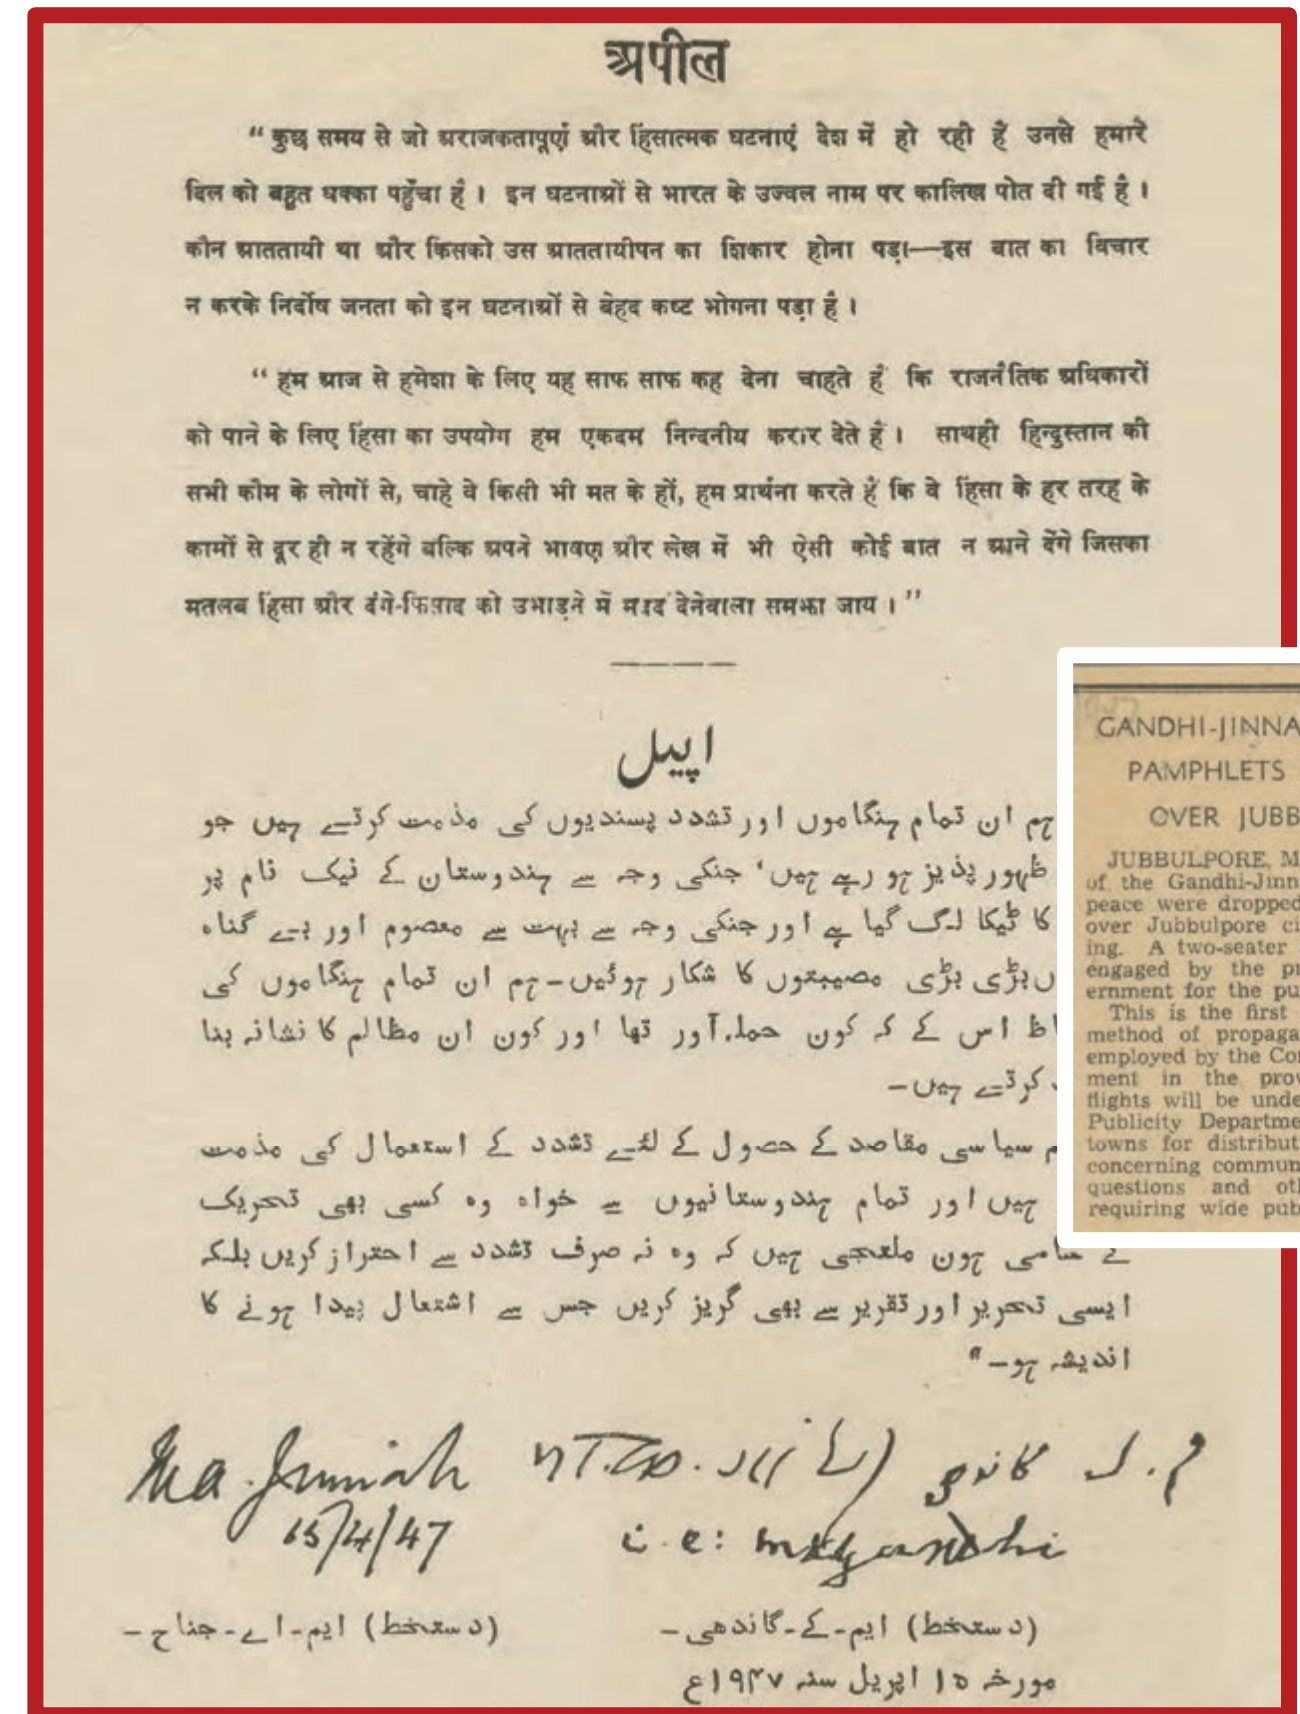 अपील
“ कुछ समय से जो अराजकतापूर्ण और हिंसात्मक घटनाएं देश में हो रही हैं उनसे हमारे
दिल को बहुत धक्का पहुँचा है । इन घटनाओं से भारत के उज्वल नाम पर कालिख पोत दी गई है ।
कौन आततायी था और किसको उस आततायीपन का शिकार होना पड़ा—इस बात का विचार
न करके निर्दोष जनता को इन घटनाओं से बेहद कष्ट भोगना पड़ा है ।
“ हम आज से हमेशा के लिए यह साफ साफ कह देना चाहते हैं कि राजनैतिक अधिकारों
को पाने के लिए हिंसा का उपयोग हम एकदम निन्दनीय करार देते हैं । साथही हिन्दुस्तान की
सभी कौम के लोगों से, चाहे वे किसी भी मत के हों, हम प्रार्थना करते हैं कि वे हिंसा के हर तरह के
कामों से दूर ही न रहेंगे बल्कि अपने भाषण और लेख में भी ऐसी कोई बात न आने देंगे जिसका
मतलब हिंसा और दंगे-फिसाद को उभाड़ने में मदद देनेवाला समझा जाय । ”
اپیل
ہم ان تمام ہنگاموں اور تشدد پسندیوں کی مذمت کرتے ہیں جو
ظہور پذیز ہو رہے ہیں، جنکی وجہ سے ہندوستان کے نیک نام پر
کا ٹیکا لگ گیا ہے اور جنکی وجہ سے بہت سے معصوم اور بے گناہ
بڑی بڑی مصیبتوں کا شکار ہوئیں۔ ہم ان تمام ہنگاموں کی
اس کے کہ کون حملہ آور تھا اور کون ان مظالم کا نشانہ بنا
کرتے ہیں۔
سیاسی مقاصد کے حصول کے لئے تشدد کے استعمال کی مذمت
ہیں اور تمام ہندوستانیوں سے خواہ وہ کسی بھی تحریک
کے حامی ہون ملتجی ہیں کہ وہ نہ صرف تشدد سے احتراز کریں بلکہ
ایسی تحریر اور تقریر سے بھی گریز کریں جس سے اشتعال پیدا ہونے کا
اندیشہ ہو۔"
GANDHI-JINNA
PAMPHLETS
OVER JUBB
JUBBULPORE, M
of the Gandhi-Jinn
peace were dropped
over Jubbulpore ci
ing. A two-seater
engaged by the pr
ernment for the pu
This is the first
method of propaga
employed by the Con
ment in the prov
flights will be unde
Publicity Departme
towns for distribut
concerning commun
questions and oth
requiring wide pub
M.A. Jinnah
15/4/47
گاندھی
i.e: mkgandhi
(دستخط) ایم-کے-گاندھی-
(دستخط) ایم-اے-جناح-
مورخہ ۱۵ اپریل سنہ ۱۹۴۷ع